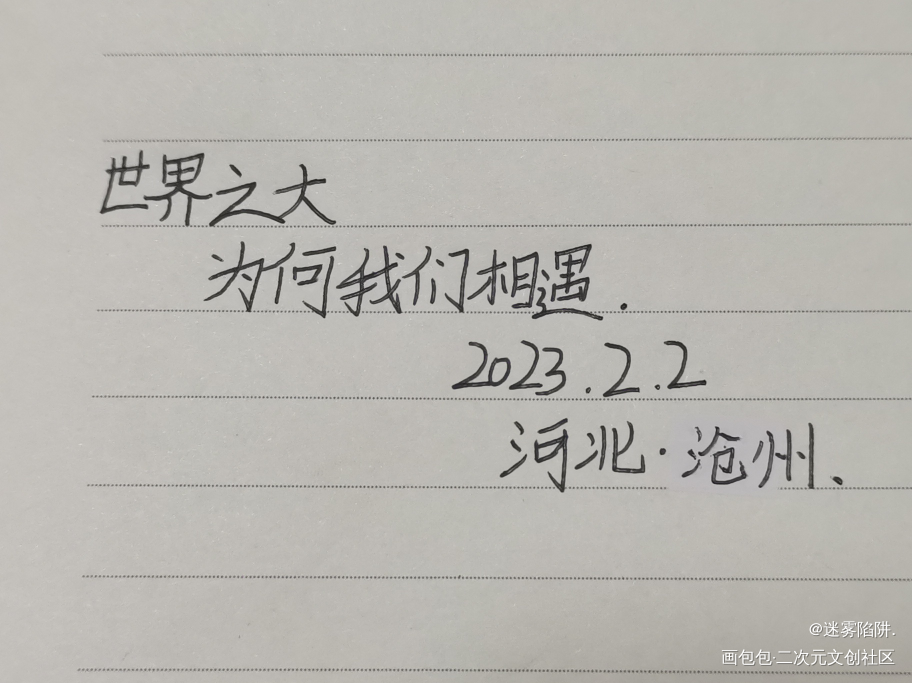 世界之大
为何我们相遇.
2023.2.2
河北·沧州、
@迷雾陷阱.
画包包·二次元文创社区